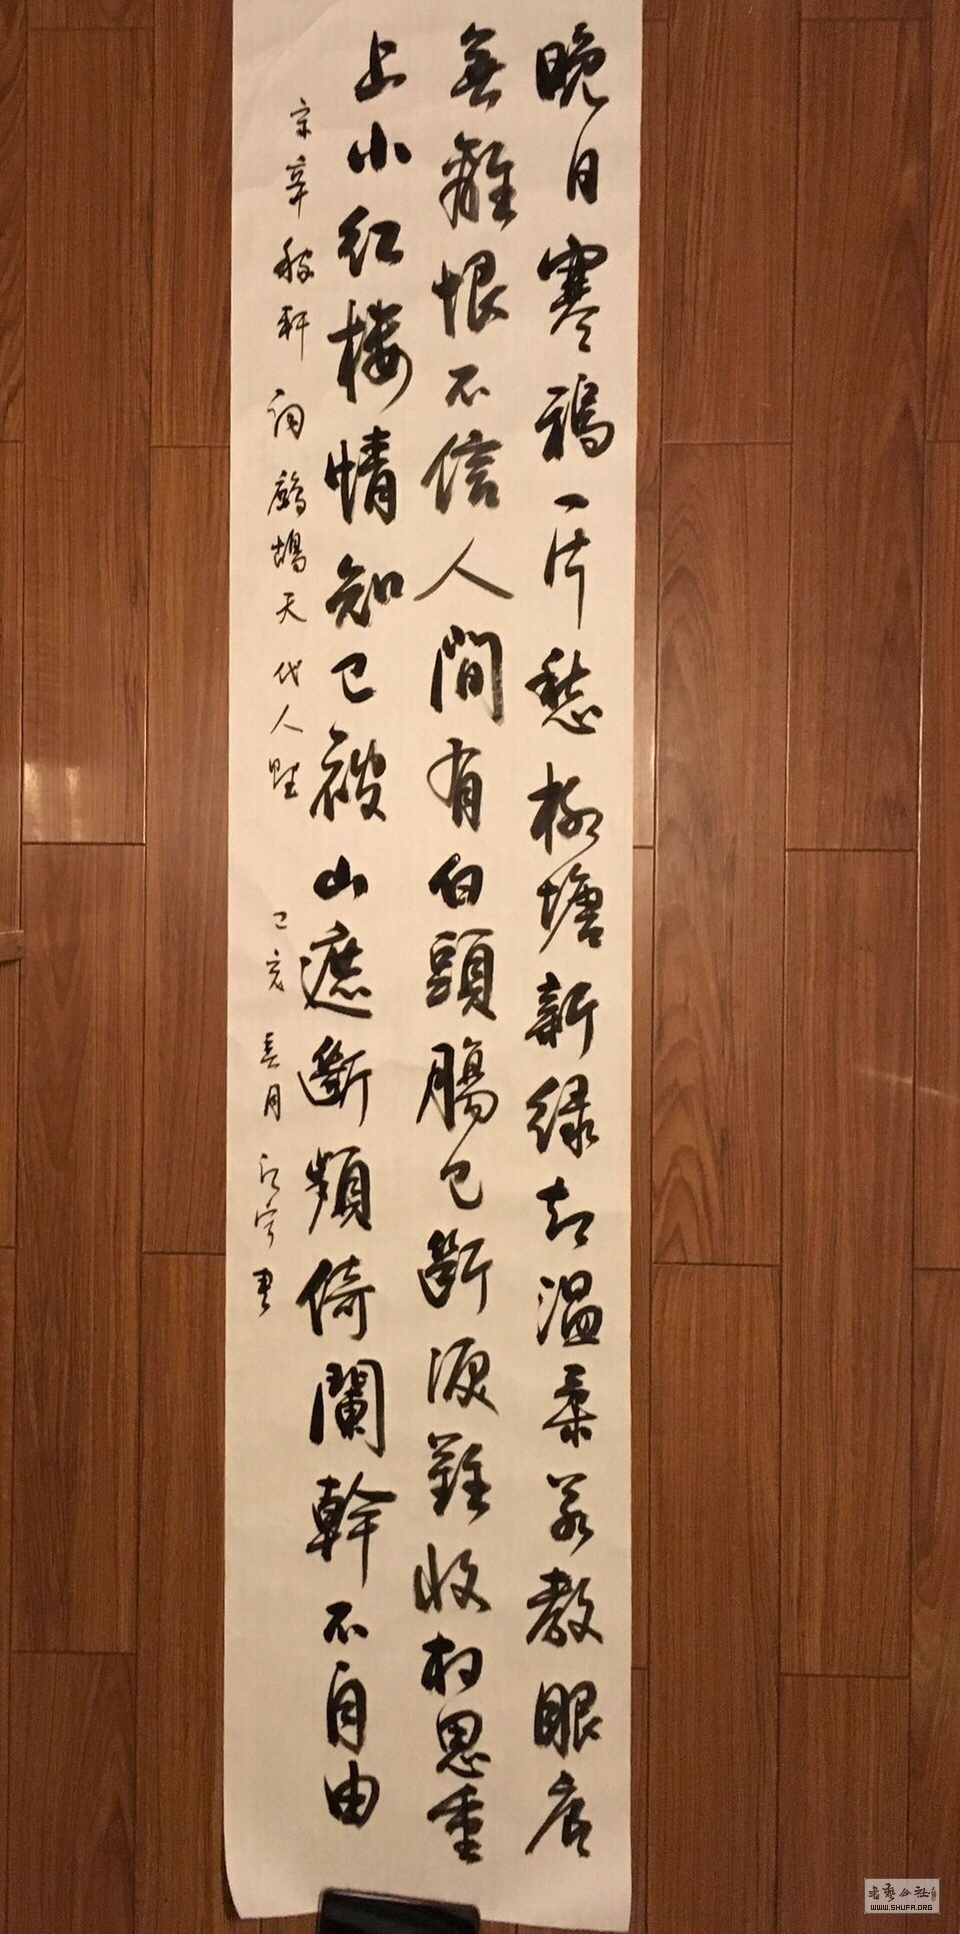 晚日寒鴉一片愁柳塘新绿却温柔若教眼底
無離恨不信人間有白頭腸已斷淚難收相思重
上小红楼情知已被山遮斷頻倚闌幹不自由
宋辛稼軒词鷓鴣天代人賦
己亥春月江宁書
WWW.SHUFA.ORG